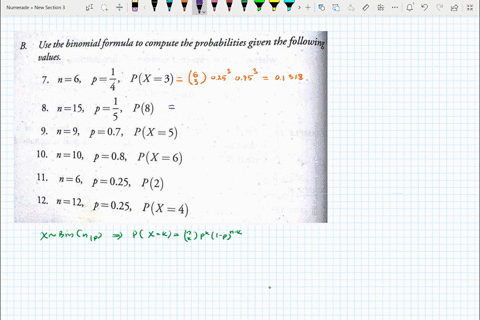 Numerade » New Section 3
B. Use the binomial formula to compute the probabilities given the following
values.
7. n=6, p=1/4, P(X=3) = (6 3) 0.25³ 0.75³ = 0.1318.
8. n=15, p=1/5, P(8) =
9. n=9, p=0.7, P(X=5)
10. n=10, p=0.8, P(X=6)
11. n=6, p=0.25, P(2)
12. n=12, p=0.25, P(X=4)
X~Bin(n,p) ⇒ P(X=k) = (n k) pᵏ (1-p)ⁿ⁻ᵏ